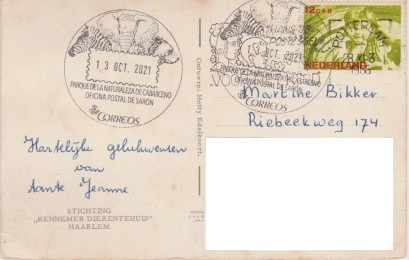 13 OCT. 2021
PARQUE DE LA NATURALEZA DE CABARCENO
OFICINA POSTAL DE SARÓN
CORREOS
Hartelijke gelukwensen
van
Tante Jeanne
STICHTING
"KENNEMER DIERENTEHUIS"
HAARLEM
Ontwerp: Hetty Edelkoort.
13 OCT. 2021
PARQUE DE LA NATURALEZA DE CABARCENO
OFICINA POSTAL DE SARÓN
CORREOS
12c+8
NEDERLAND
Martine Bikker
Riebeekweg 174